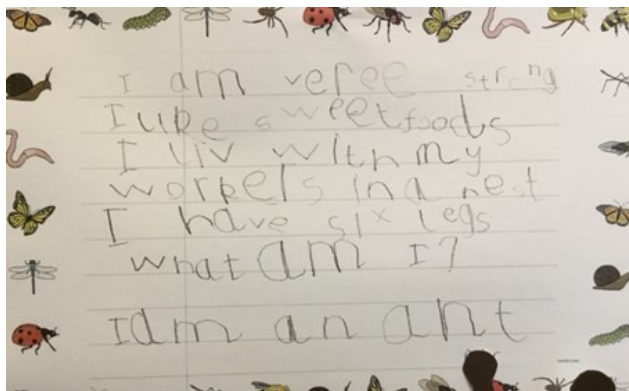 I am veree strong
I like sweet foods
I liv with my
workers in a nest
I have six legs
what am I?
I am an ant